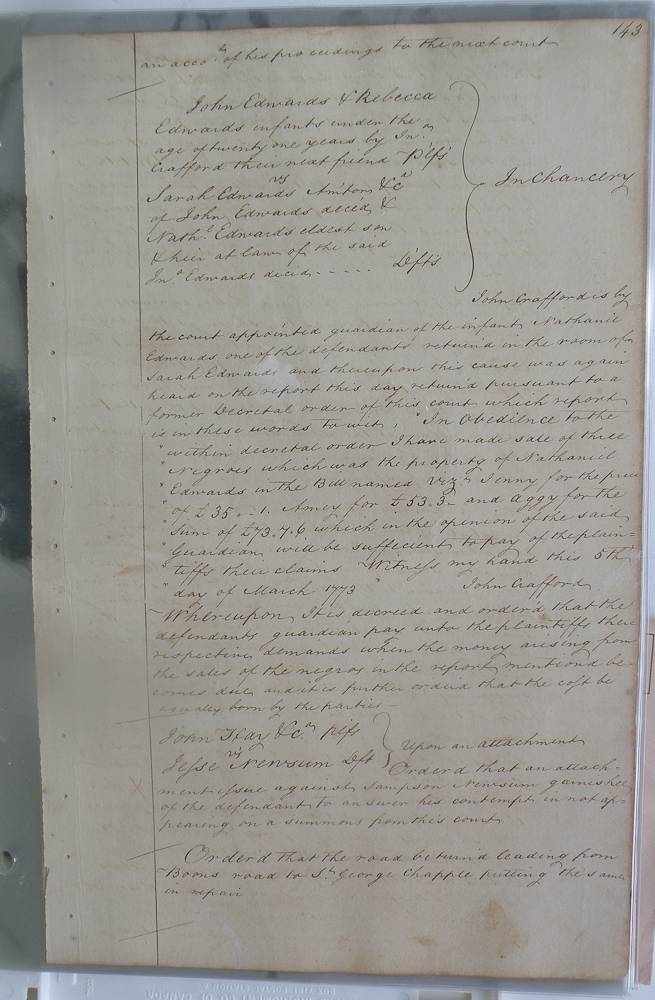 143
an acco.t of his proceedings to the next court
John Edwards & Rebecca
Edwards infants under the
age of twenty one years by Jn.o
Crafford their next friend Plfs
vs
Sarah Edwards Am'tors &c.a
of John Edwards deced &
Nath.l Edwards eldest son
& heir at law of the said
Jn.o Edwards decid - - - - - Dfts
In Chancery
John Crafford is by
the court appointed guardian of the infant Nathaniel
Edwards one of the defendants return'd in the room of
Sarah Edwards and thereupon this cause was again
heard on the report this day return'd pursuant to a
former Decretal order of this court which report
is in these words to wit, "In Obedience to the
" within decretal order I have made sale of three
" Negroes which was the property of Nathaniel
" Edwards in the Bill named Viz.t Jenny for the
" of £35.-1. Amey for £53.3- and Aggy for the
" sum of £73.7.6 which in the opinion of the said
" Guardian will be sufficient to pay of the plain=
" tiffs their claims Witness my hand this 5th
" day of March 1773 " John Crafford
Whereupon It is decreed and orderd that the
defendants guardian pay unto the plaintiffs their
respective demands when the money arising from
the sales of the negros in the report mentiond be
comes due and it is further orderd that the cost be
equally born by the parties -
John Hay &c.a plfs
vs
Jesse Newsum Dft
Upon an attachment
Orderd that an attach=
ment issue against Sampson Newsum garnishee
of the defendant to answer his contempt in not ap=
pearing on a summons from this court
Orderd that the road be turnd leading from
Boons road to S.t George Chapple putting the same
in repair